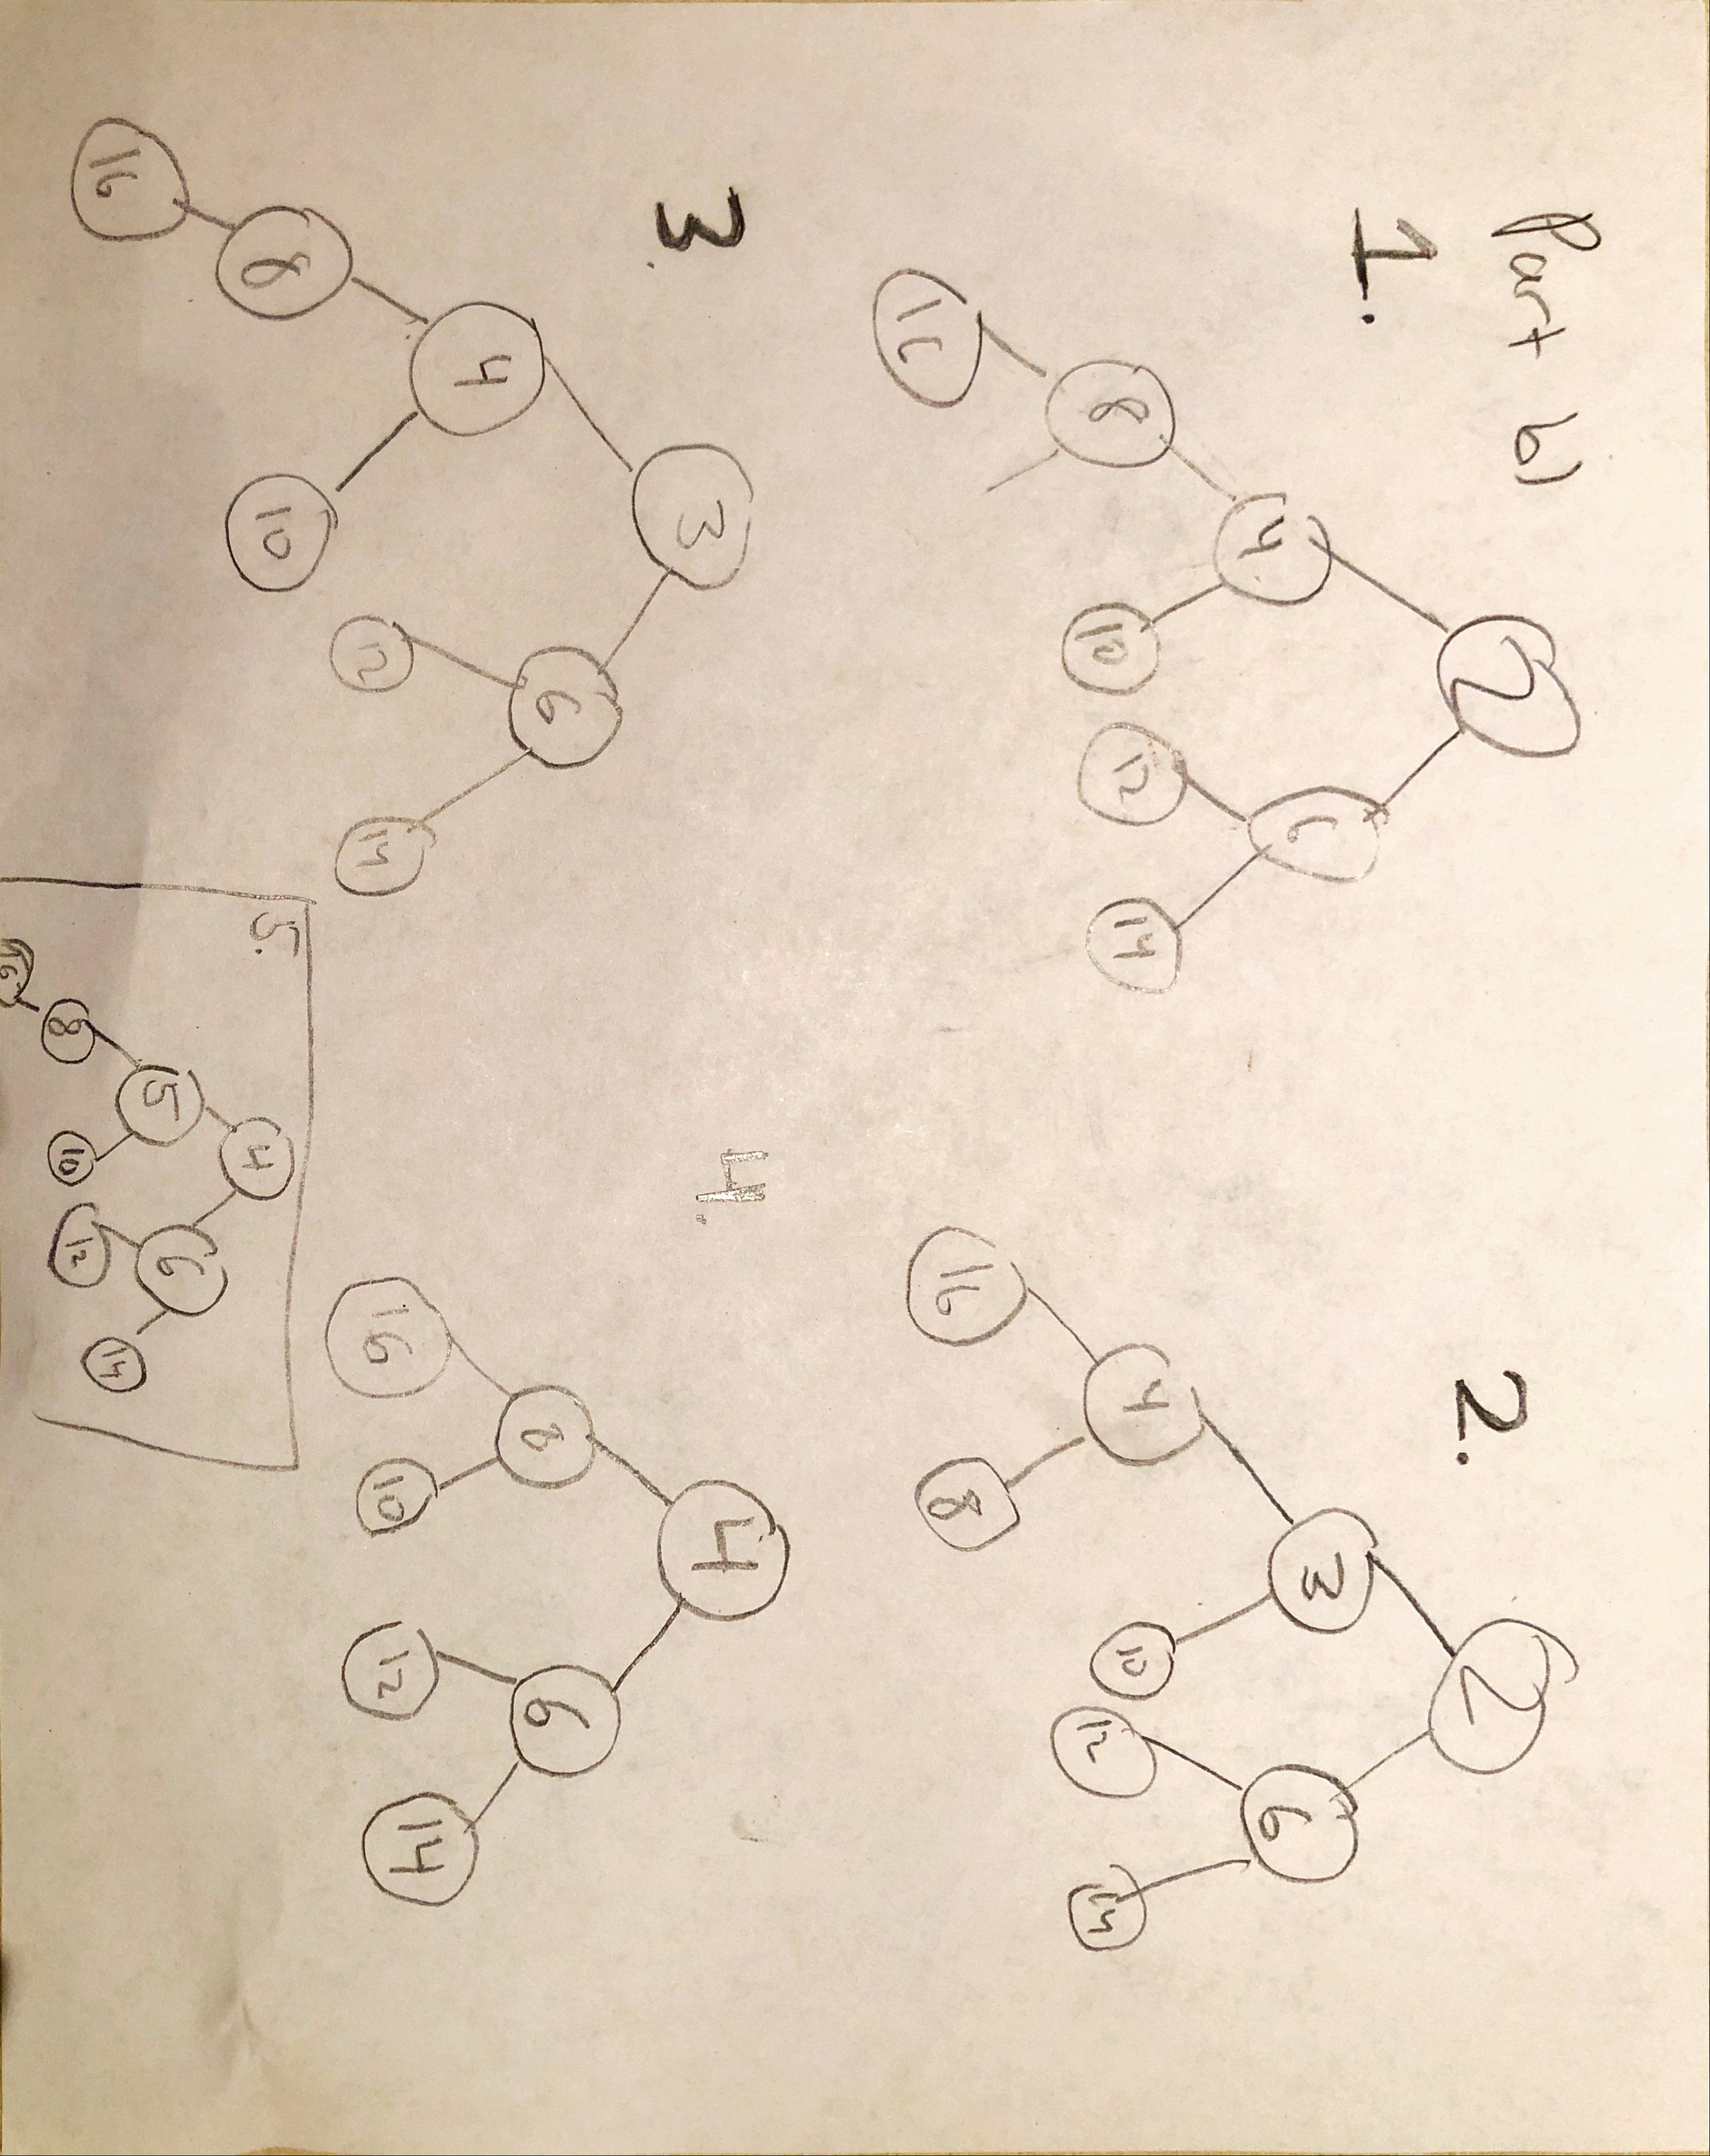 Part b)
1.
2
4 6
8 10 12 14
2.
2
3 6
4 10 12 14
16 8
3.
3
4 6
8 10 12 14
16
4.
4
8 6
16 10 12 14
5.
4
5 6
8 10 12 14
16